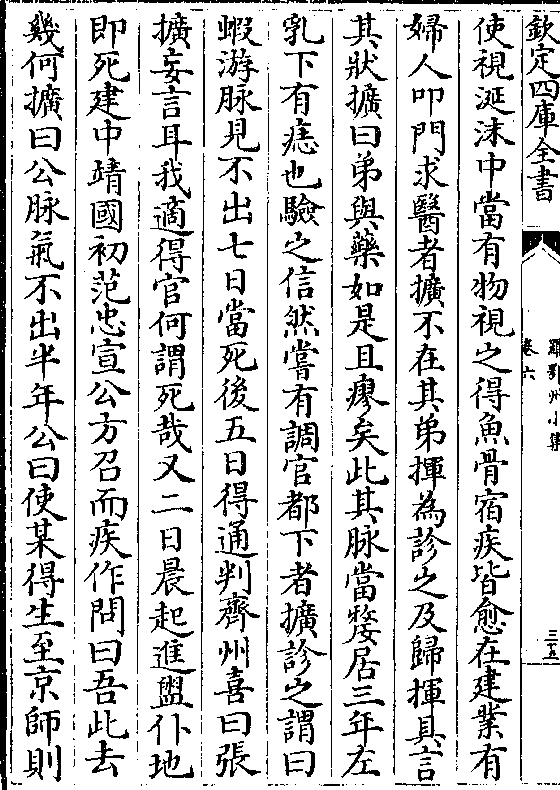 欽定四庫全書
羅鄂州小集
卷六
三五
使視涎沫中當有物視之得魚骨宿疾皆愈在建業有
婦人叩門求醫者擴不在其弟揮為診之及歸揮具言
其狀擴曰弟與藥如是且瘳矣此其脉當嫠居三年左
乳下有痣也驗之信然嘗有調官都下者擴診之謂曰
蝦游脉見不出七日當死後五日得通判齊州喜曰張
擴妄言耳我適得官何謂死哉又二日晨起進盥仆地
即死建中靖國初范忠宣公方召而疾作問曰吾此去
幾何擴曰公脉氣不出半年公曰使某得生至京師則